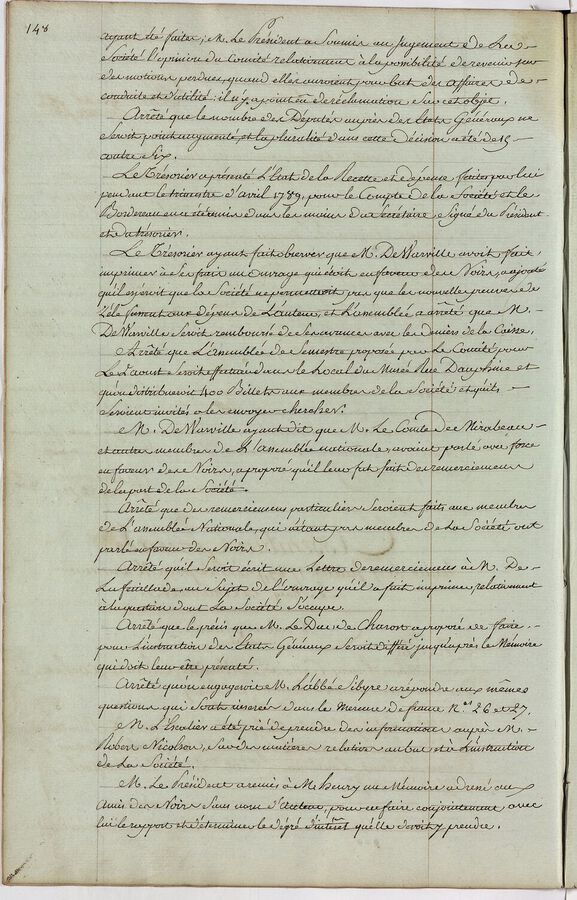 148
ayant été faites; M. Le Président a Soumis au Jugement de La
Société l'opinion du Comité relativement à la possibilité de revenir sur
des motions perdues, quand elles auroient pour but des affaires de
conduite et d'utilité; il n'y a point eu de réclamation Sur cet objet.
Arrêté que le nombre des Députés auprès des Etats Généraux ne
Seroit point augmenté, et la pluralité dans cette Décision a été de 15
contre Six.
Le Trésorier a présenté L'Etat de la Recette et dépense faites par lui
pendant le trimestre d'avril 1789. pour le Compte de la Société et le
Bordereau en a été remis dans les mains du Secrétaire Signé du Président
et du trésorier.
Le Trésorier ayant fait observer que M. De Warville avoit fait
imprimer à Ses frais un ouvrage qui étoit en faveur des Noirs, a ajouté
qu'il espéroit que la Société ne permettroit pas que les nouvelles preuves de
Zèle fussent aux dépens de L'auteur, et L'assemblée a arrêté que M.
De Warville Seroit remboursé de Ses avances avec les deniers de la Caisse.
Arrêté que L'assemblée de Semestre proposée par Le Comité pour
Le aoust Seroit effectuée dans le Local du Musée Rue Dauphine et
qu'on distribueroit 400 Billets aux membres de la Société et qu'ils
seroient invités à les envoyer chercher.
M. De Warville ayant dit que M. Le Comte de Mirabeau
et autres membres de L'assemblée nationale, avoient parlé avec force
en faveur des Noirs, a proposé qu'il leur fut fait des remerciemens
de la part de la Société.
Arrêté que des remerciemens particuliers Seroient faits aux membres
de L'assemblée Nationale, qui n'étant pas membres de La Société ont
parlé en faveur des Noirs.
Arrêté qu'il Seroit écrit une Lettre de remerciemens à M. De
La feuillade, au Sujet de l'ouvrage qu'il a fait imprimer, relativement
à la question dont La Société S'occupe.
Arrêté que le précis que M. Le Duc de Charost a proposé de faire
pour L'instruction des Etats Généraux Seroit différé jusqu'après le Mémoire
qui doit leur être présenté.
Arrêté qu'on engageroit M. L'abbé Sibyre à répondre aux mêmes
questions qui Sont insérées dans le Mercure de france Nos 26 et 27.
M. L'Escalier a été prié de prendre des informations auprès M.
Robert Nicolson, Sur des matières relatives au but et à L'instruction
de La Société.
M. Le Président a remis à M. henry un Mémoire adressé aux
Amis des Noirs Sans nom d'Auteur, pour en faire conjointement avec
lui le rapport et déterminer le dégré d'intérêt qu'elle devoit y prendre.